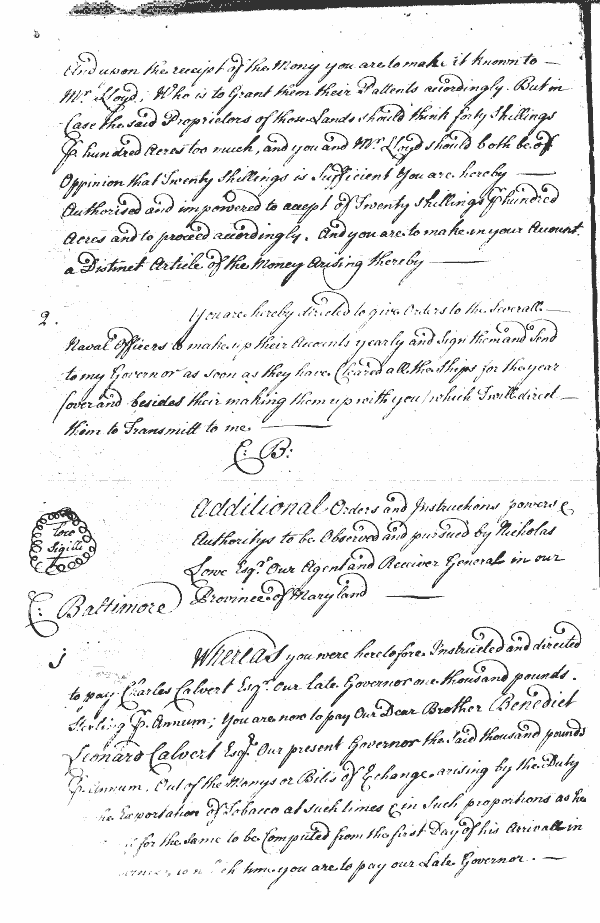 And upon the receipt of the Mony you are to make it known to
Mr. Lloyd, Who is to Grant them their Pattents accordingly. But in
Case the said Proprietors of those Lands should think forty Shillings
P. hundred Acres too much, and you and Mr. Lloyd should both be of
Oppinion that Twenty Shillings is Sufficient You are hereby
Authorised and impowered to accept of Twenty shillings P. hundred
Acres and to proceed accordingly. And you are to make in your Account
a Distinct Article of the Money Arising thereby
2. You are hereby directed to give Orders to the Severall
Naval Officers to make up their Accounts yearly and Sign them and Send
to my Governor as soon as they have Cleared all the Ships for the year
(over and besides their making them up with you) which I will direct
them to Transmitt to me.
C: B:
Additional Orders and Instructions powers &
Authoritys to be Observed and pursued by Nicholas
Lowe Esqr. Our Agent and Receiver General in our
Province of Maryland
Loco
Sigilli
C: Baltimore
j Whereas you were heretofore Instructed and directed
to pay Charles Calvert Esqr. Our late Governor one thousand pounds
Sterling P. Annum; You are now to pay Our Dear Brother Benedict
Leonard Calvert Esqr. Our present Governor the said thousand pounds
P. Annum. Out of the Monys or Bills of Exchange arising by the Duty
the Exportation of Tobacco at such times & in Such proportions as he
for the same to be Computed from the first Day of his Arrivall in
time you are to pay our Late Governor.